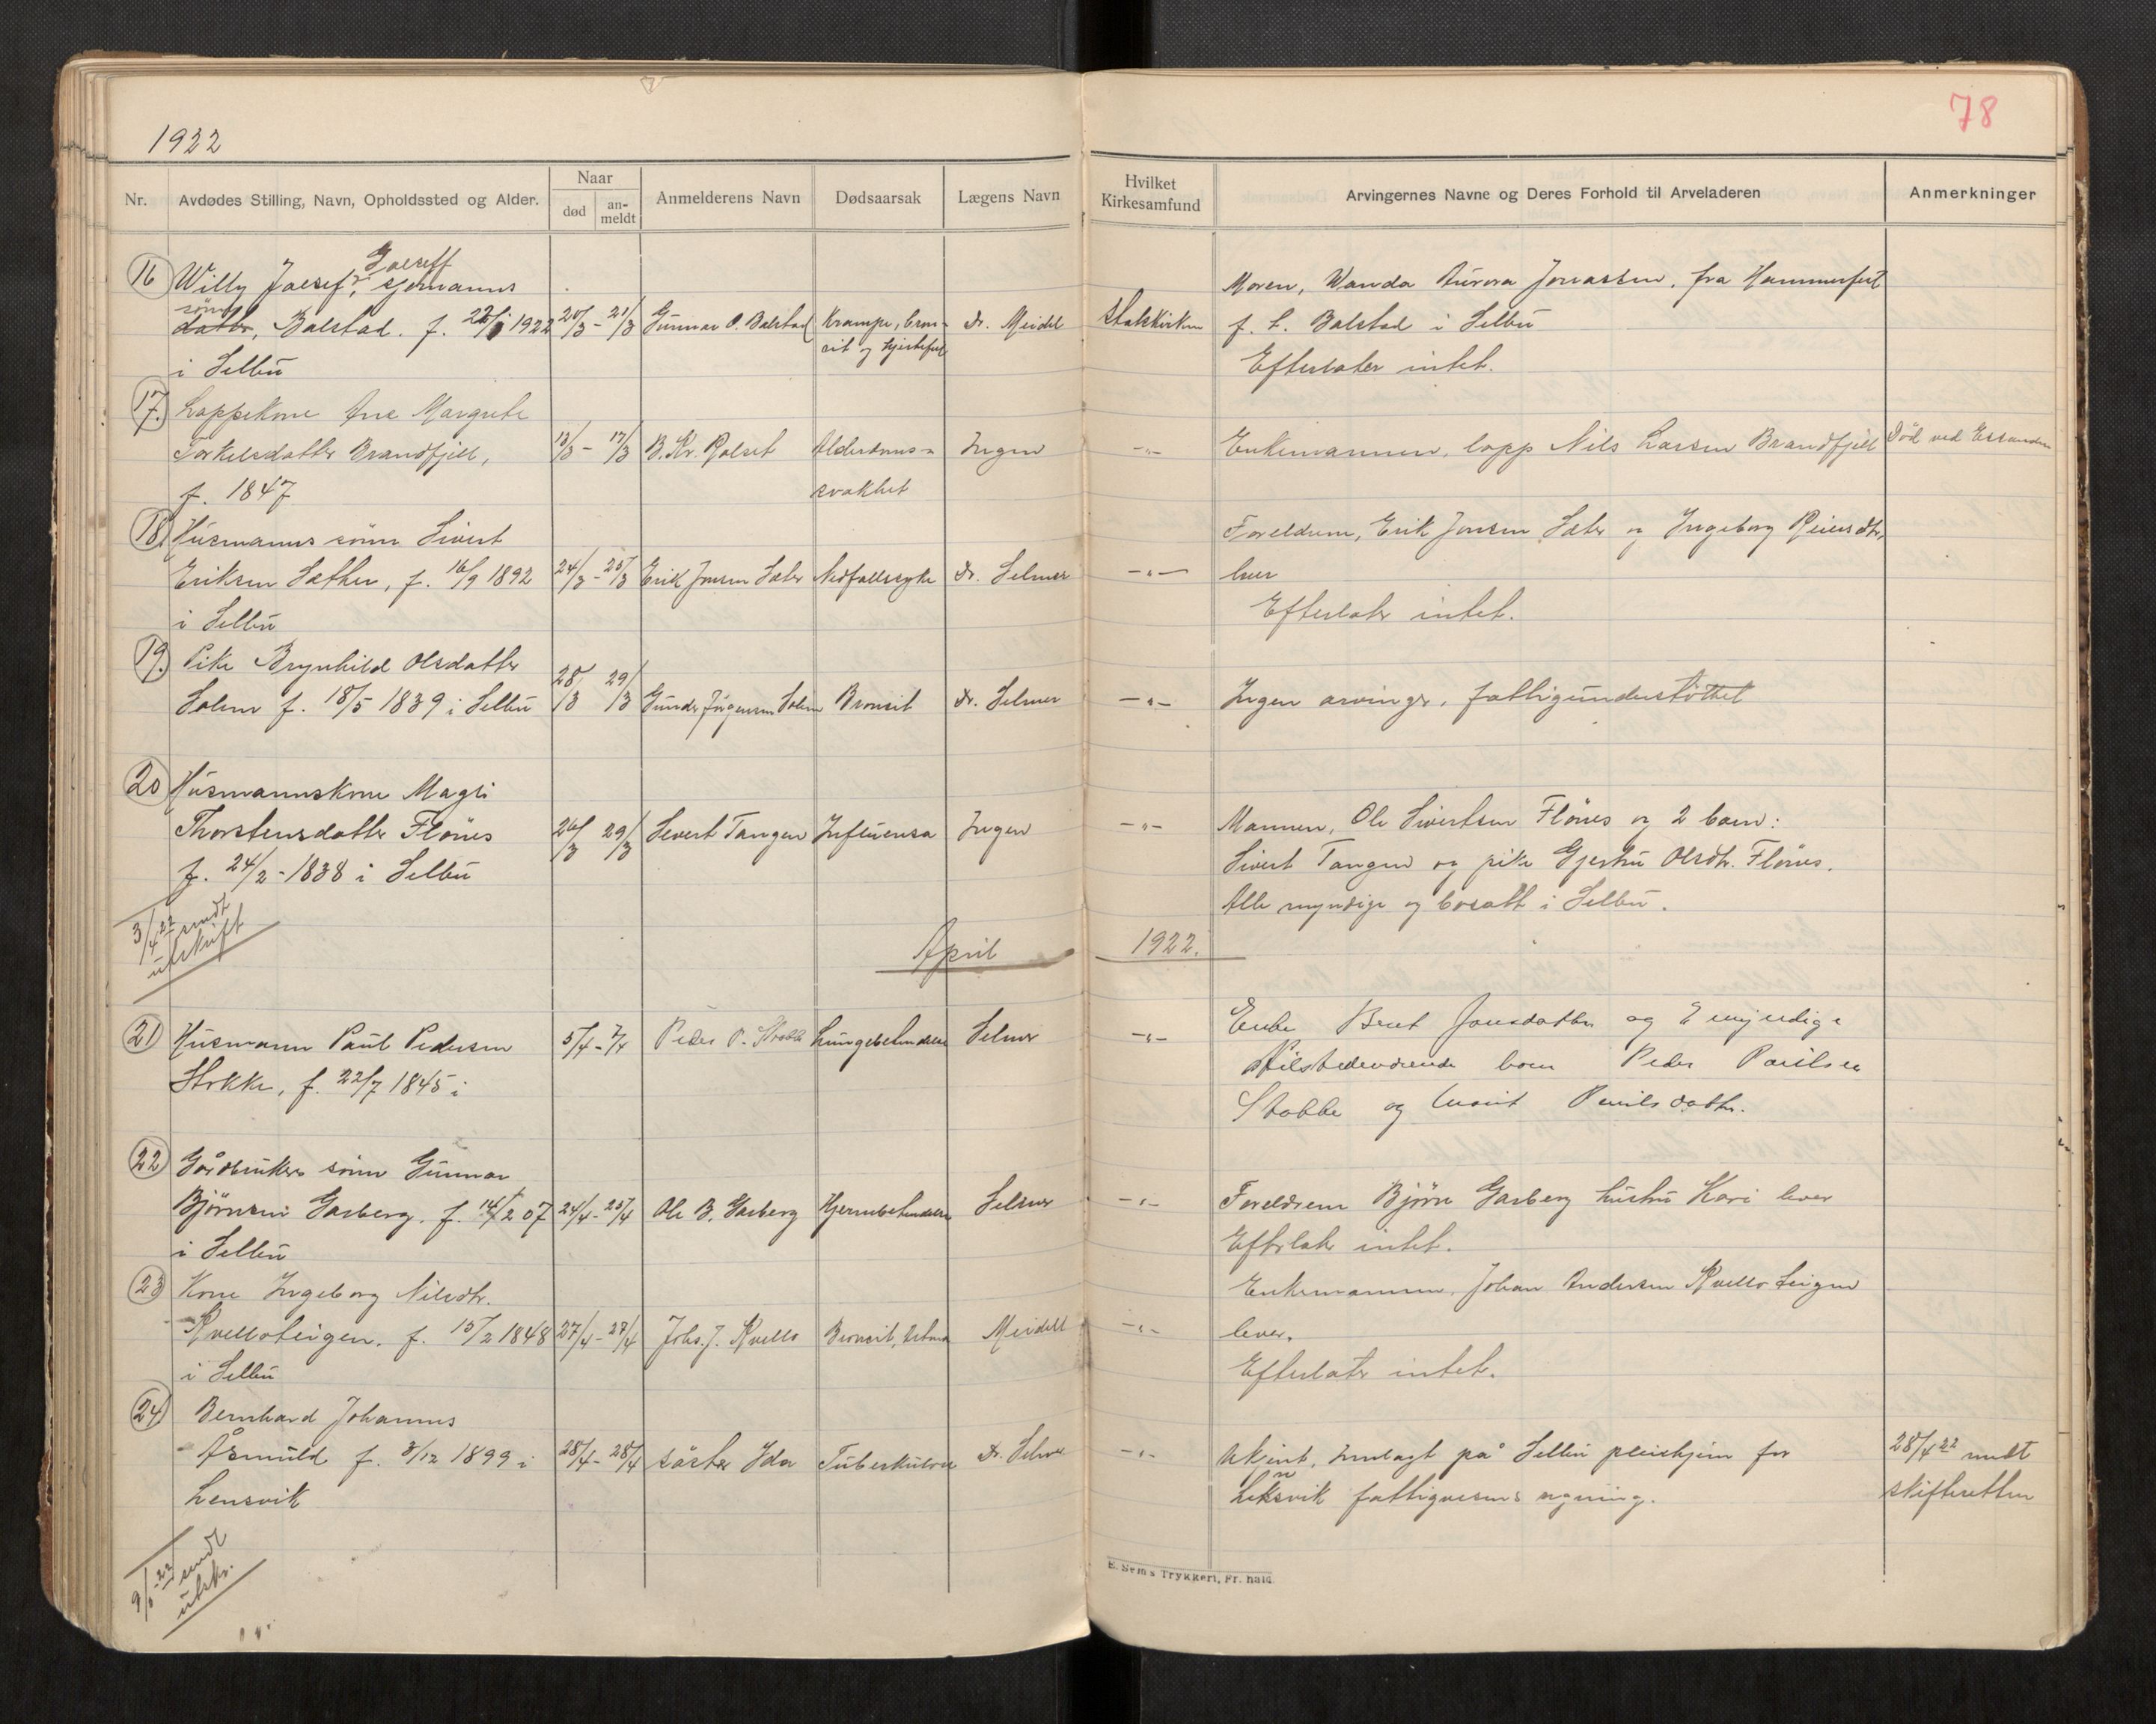 78
1922
Nr.
Avdødes Stilling, Navn, Opholdssted og Alder.
Naar
død
an-
meldt
Anmelderens Navn
Dødsaarsak
Lægens Navn
Hvilket
Kirkesamfund
Arvingernes Navne og Deres Forhold til Arveladeren
Anmerkninger
16
Willy Josef,
sön
datter, Balstad. f. 1922
i Selbu
20/3 - 21/3
Gunnar O. Balstad
Krampe, bron-
kit og
Dr. Meidel
Statskirken
Moren, Wanda Aurora Jonassen, fra Hammerfest
f. t. Balstad i Selbu
Efterlater intet.
17.
Lappekone Ane Margrete
Torkelsdatter Brandfjell,
f. 1847
13/3 - 17/3
B. Kr. Rolset
Alderdoms-
svakhet
Ingen
-"-
Enkemannen, lapp Nils Larsen Brandfjell
Död ved Essanden
18.
Husmanns sönn Sivert
Eriksen Sæther, f. 16/9 1892
i Selbu
24/3 - 25/3
Erik Jonsen Sæter
Nedfallssyke
Dr. Selmer
-"-
Foreldrene, Erik Jonsen Sæter og Ingeborg Reiersdtr,
lever
Efterlater intet.
19.
Pike Brynhild Olsdatter
Solem f. 18/5 1839 i Selbu
28/3 29/3
Gunder Jörgensen Solem
Bronkit
Dr. Selmer
-"-
Ingen arvinger, fattigunderstöttet
20
Husmannskone Magli
Thorstensdatter Flönes
f. 24/2 - 1838 i Selbu
26/3 29/3
Sivert Tangen
Influensa
Ingen
-"-
Mannen, Ole Sivertsen Flönes og 2 barn:
Sivert Tangen og pike Gjertru Olsdtr. Flönes.
Alle myndige og bosatt i Selbu.
3/4 22 sendt
utskrift
April 1922.
21
Husmann Paul Pedersen
Stokke, f. 22/7 1845 i
5/4 - 7/4
Peder P. Stokke
Lungebetendelse
Selmer
-"-
Enke Beret Jonsdatter og 2 myndige
tilstedeværende barn Peder Paulsen
Stokke og Marit Paulsdatter.
22
Gårdbrukers sönn Gunnar
Björnsen Garberg. f. 14/2 07
i Selbu
24/4 - 25/4
Ole B. Garberg
Hjernebetendelse
Selmer
-"-
Foreldrene Björn Garberg hustru Kari lever
Efterlater intet.
23
Kone Ingeborg Nilsdtr.
Kvelloteigen. f. 15/2 1848
i Selbu
27/4 - 27/4
Johs. J. Kvello
Bronkit, Astma
Meidell
-"-
Enkemannen, Johan Andersen Kvelloteigen
lever.
Efterlater intet.
24
Bernhard Johannes
Åsmuld f. 3/12 1899 i
Lensvik
28/4 - 28/4
söster Ida
Tuberkulose
Dr. Selmer
-"-
Ukjent, innlagt på Selbu pleiehjem for
Leksvik fattigvesens regning.
28/4 22 meldt
skifteretten
22 sendt
utskr.
E. Sem's Trykkeri, Fr.hald.